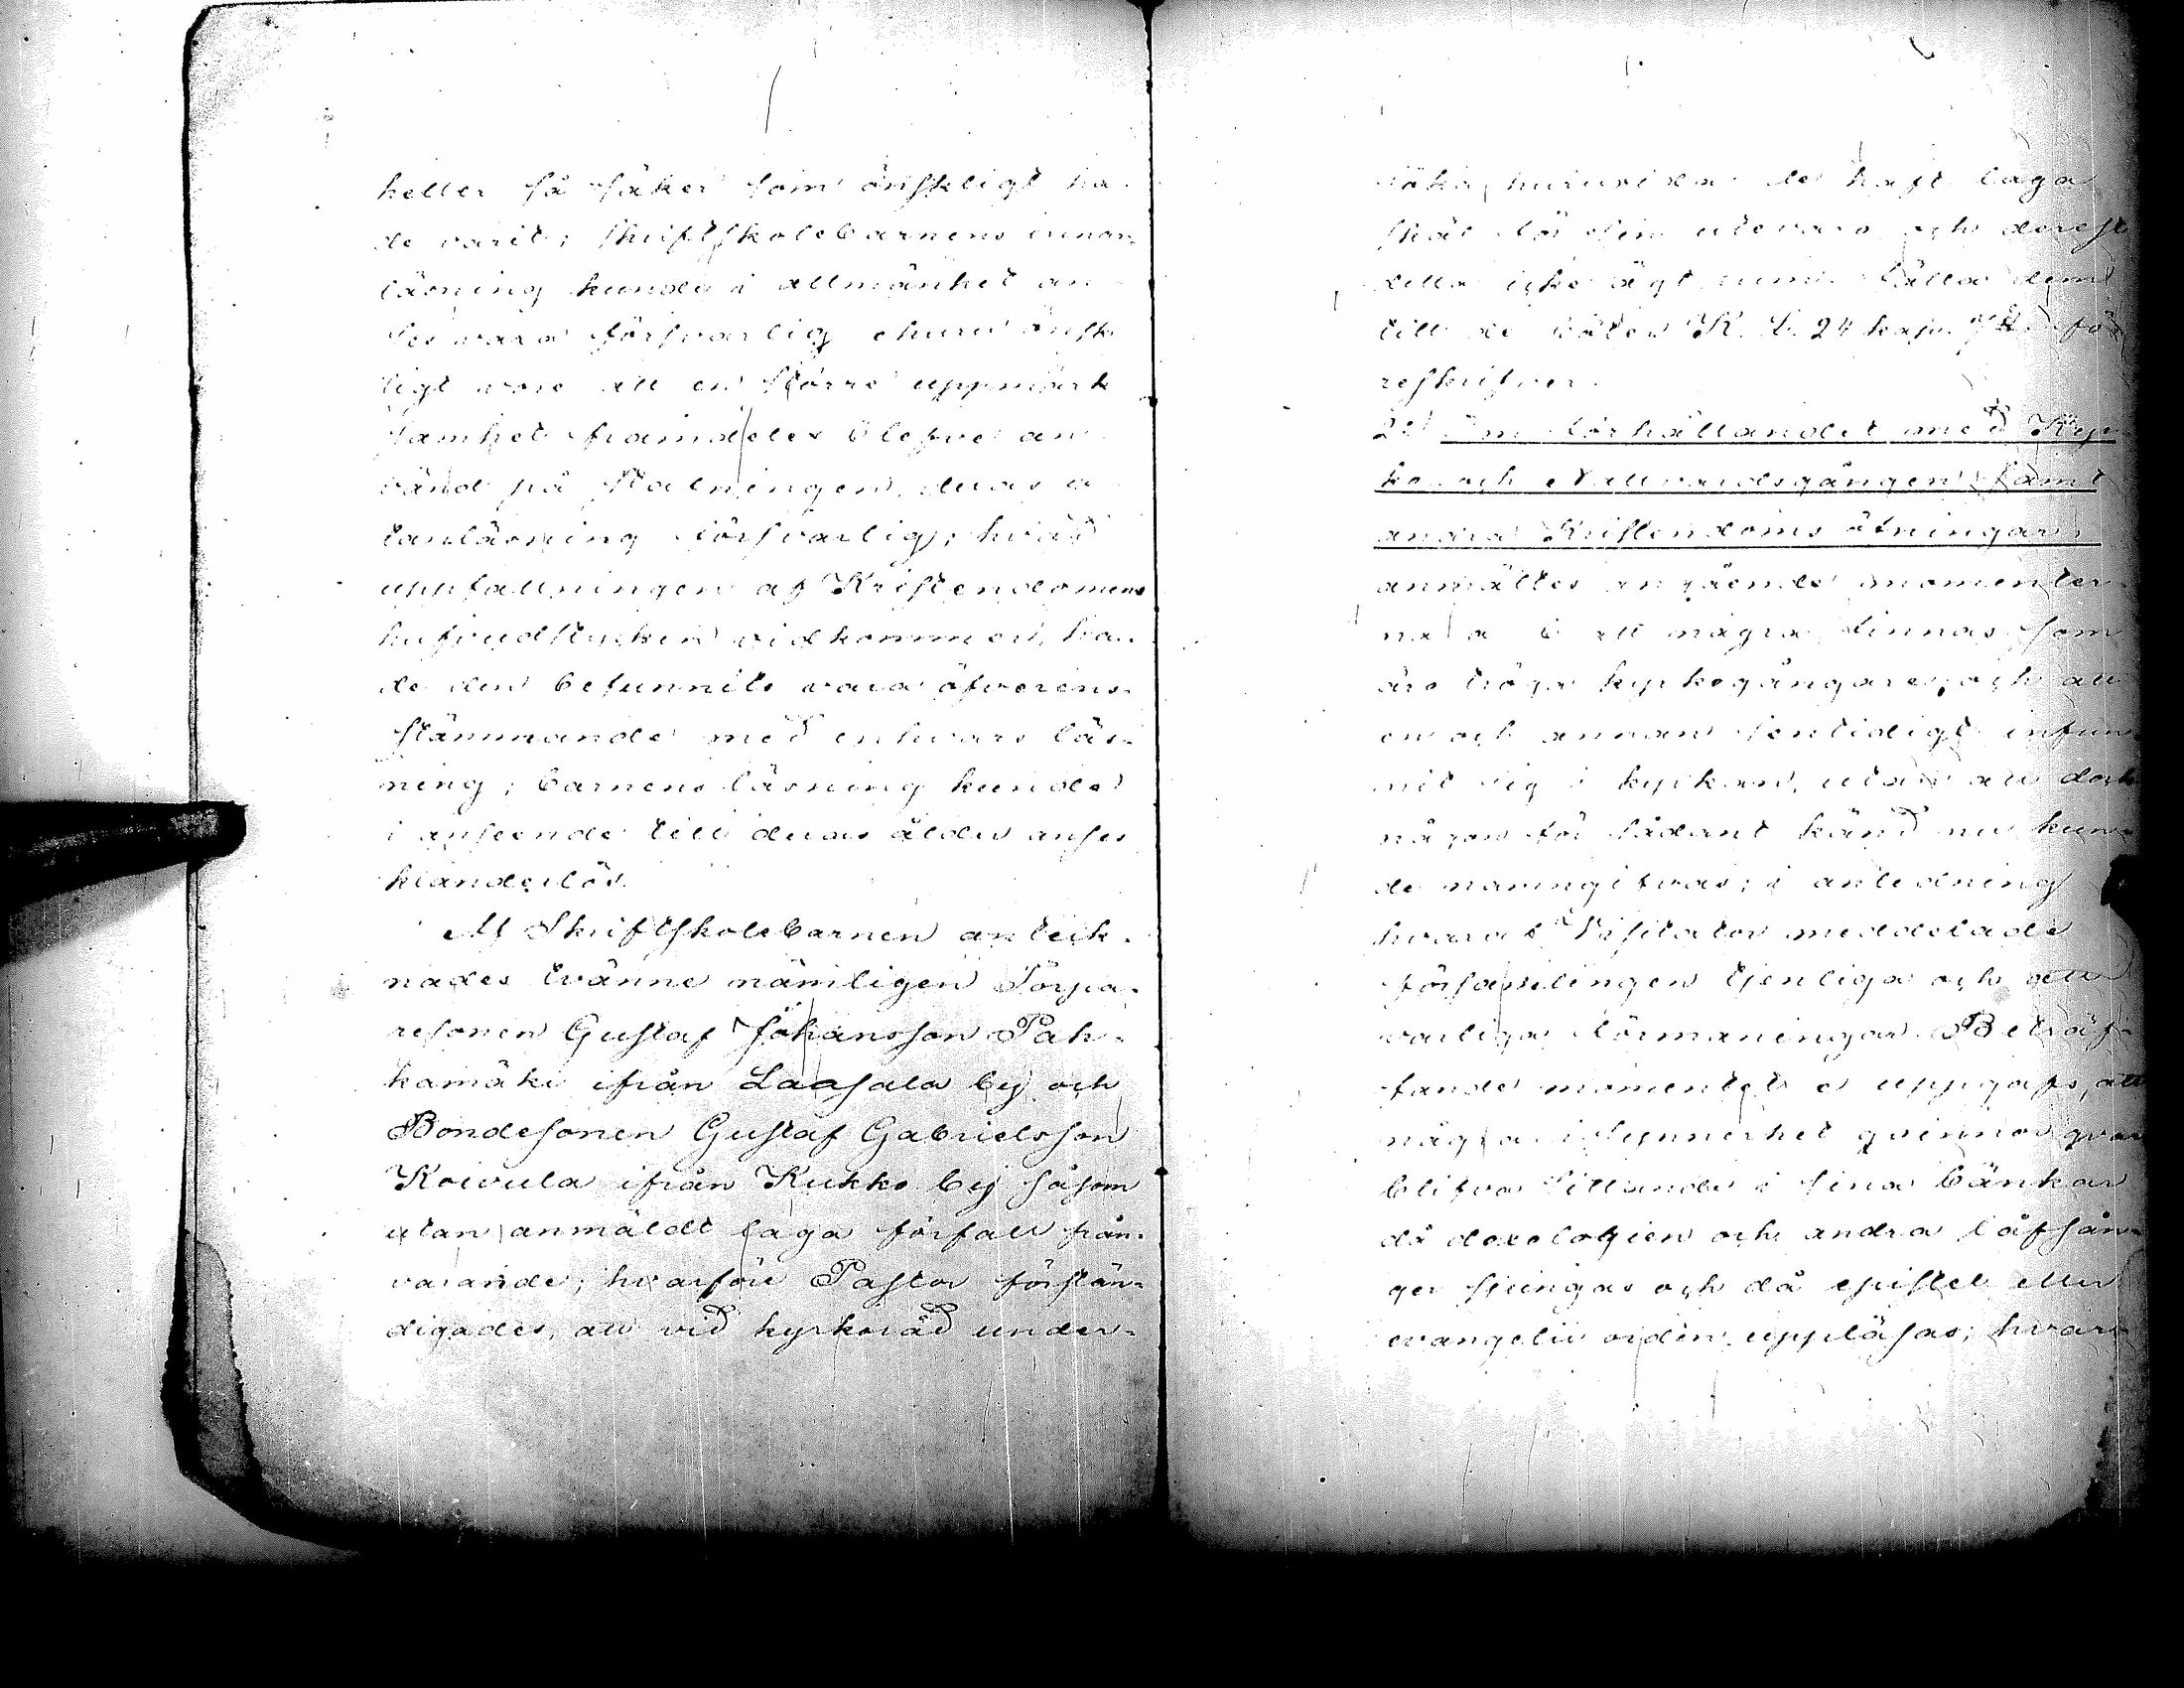 heller så säker som önskligt ha-
de varit; skriftskolebarnens innan-
läsning kunde i allmänhet an-
ses vara försvarlig ehuru önsk-
ligt vore att en större uppmärk
samhet framdeles blefve an-
vänd på stafningen, deras u-
tanläsning försvarlig; hvad
uppfattningen af Kristendomens
hufvudstycken vidkommer, ha-
de den befunnits vara öfverens-
stämmande med enhvars läs-
ning; barnens läsning kunde
i anseende till deras ålder anses
klanderlös.
Af Skriftskolebarnen anteck-
nades tvänne nämligen Torpa-
resonen Gustaf Johansson Pah-
kamäki ifrån Laasala by och
Bondesonen Gustaf Gabrielsson
Koivula ifrån Kukko by såsom
utan anmäldt laga förfall från-
varande; hvarföre Pastor förstän-
digades, att vid kyrkoråd under-
söka, huruvida de haft laga
skäl för sin utevaro och derest
detta icke ägt rum fälla dem
till de böter K. L. 24 kap. § fö-
reskrifver.
2. Om förhållandet med Kyr-
ko- och Nattvardsgången samt
andra Kristendoms öfningar,
anmältes angående momenter-
na a b att några finnas som
äro tröga kyrkogångare, och att
en och annan sentidigt infun-
nit sig i kyrkan, utan att dock
någon för sådant känd nu kun-
de namngifvas; i anledning
hvaraf Visitator meddelade
församlingen tjenliga och all-
varliga förmaningar. Beträf-
fande momentet c uppgafs, att
några i synnerhet qvinnor qvar
blifva sittande i sina bänkar
då doxologien och andra lofsån-
ger sjungas och då epistel eller
evangelii orden uppläsas; hvar-